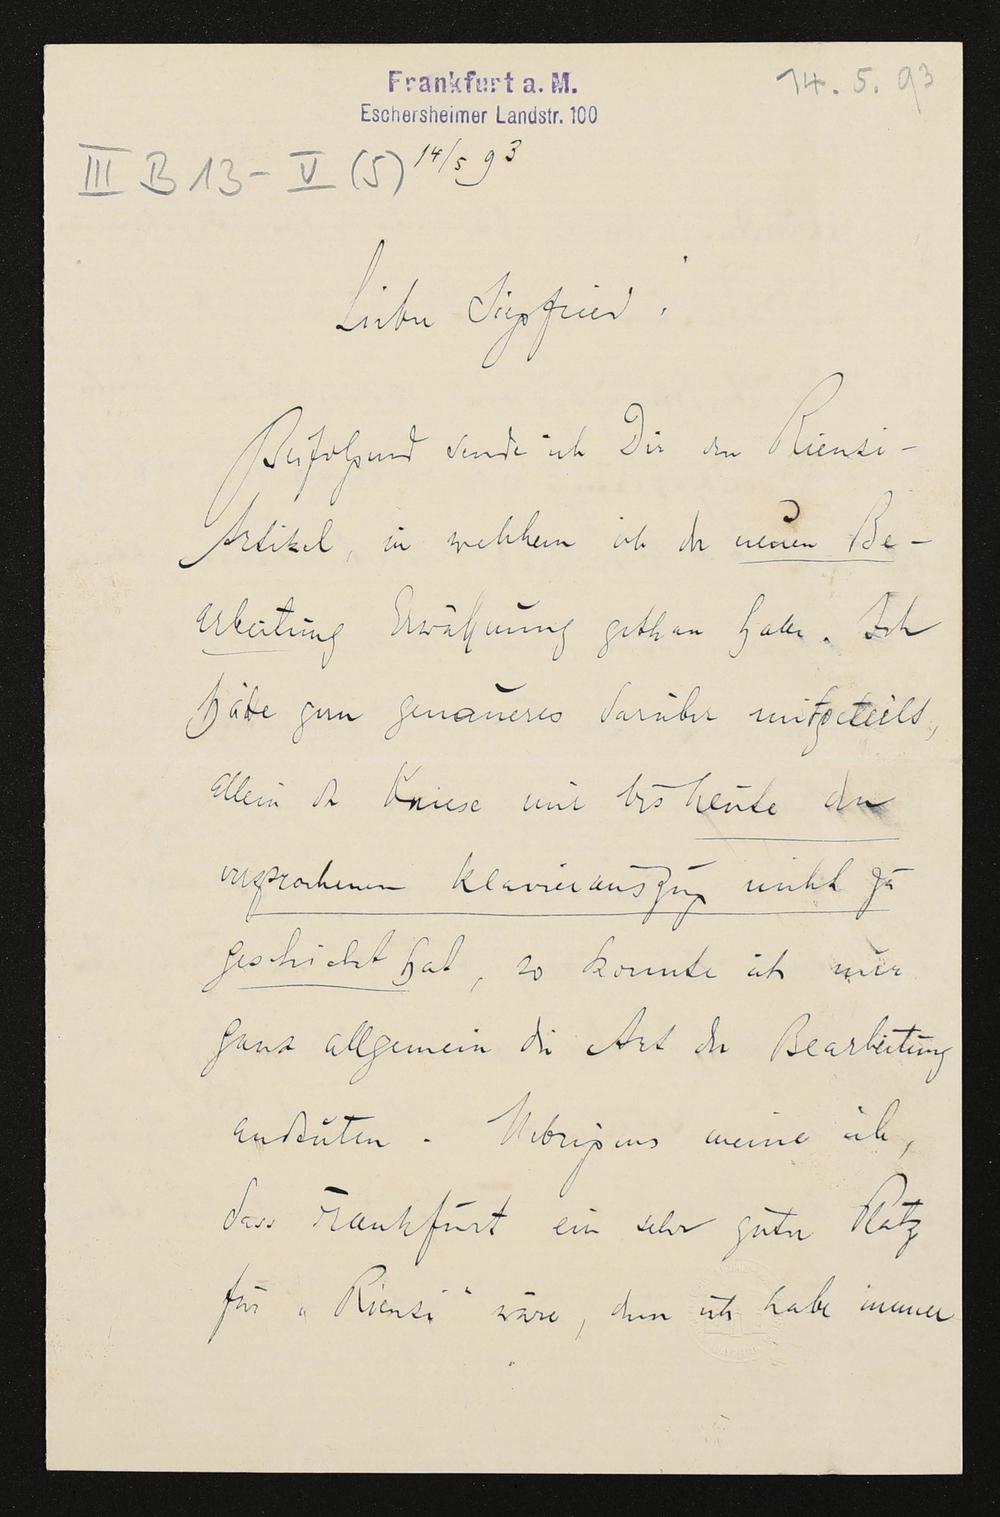 Frankfurt a. M.
Eschersheimer Landstr. 100
14. 5. 93
III B 13 - V (5)
14/5 93
Lieber Siegfried!
Beifolgend sende ich Dir den Rienzi-
Artikel, in welchem ich der neuen Be-
arbeitung Erwähnung gethan habe. Ich
hätte gern genaueres darüber mitgeteilt,
allein da Kniese mir bis heute den
versprochenen Klavierauszug nicht zu
geschickt hat, so konnte ich nur
ganz allgemein die Art der Bearbeitung
andeuten. Uebrigens meine ich,
dass Frankfurt ein sehr guter Platz
für "Rienzi" wäre, denn ich habe immer